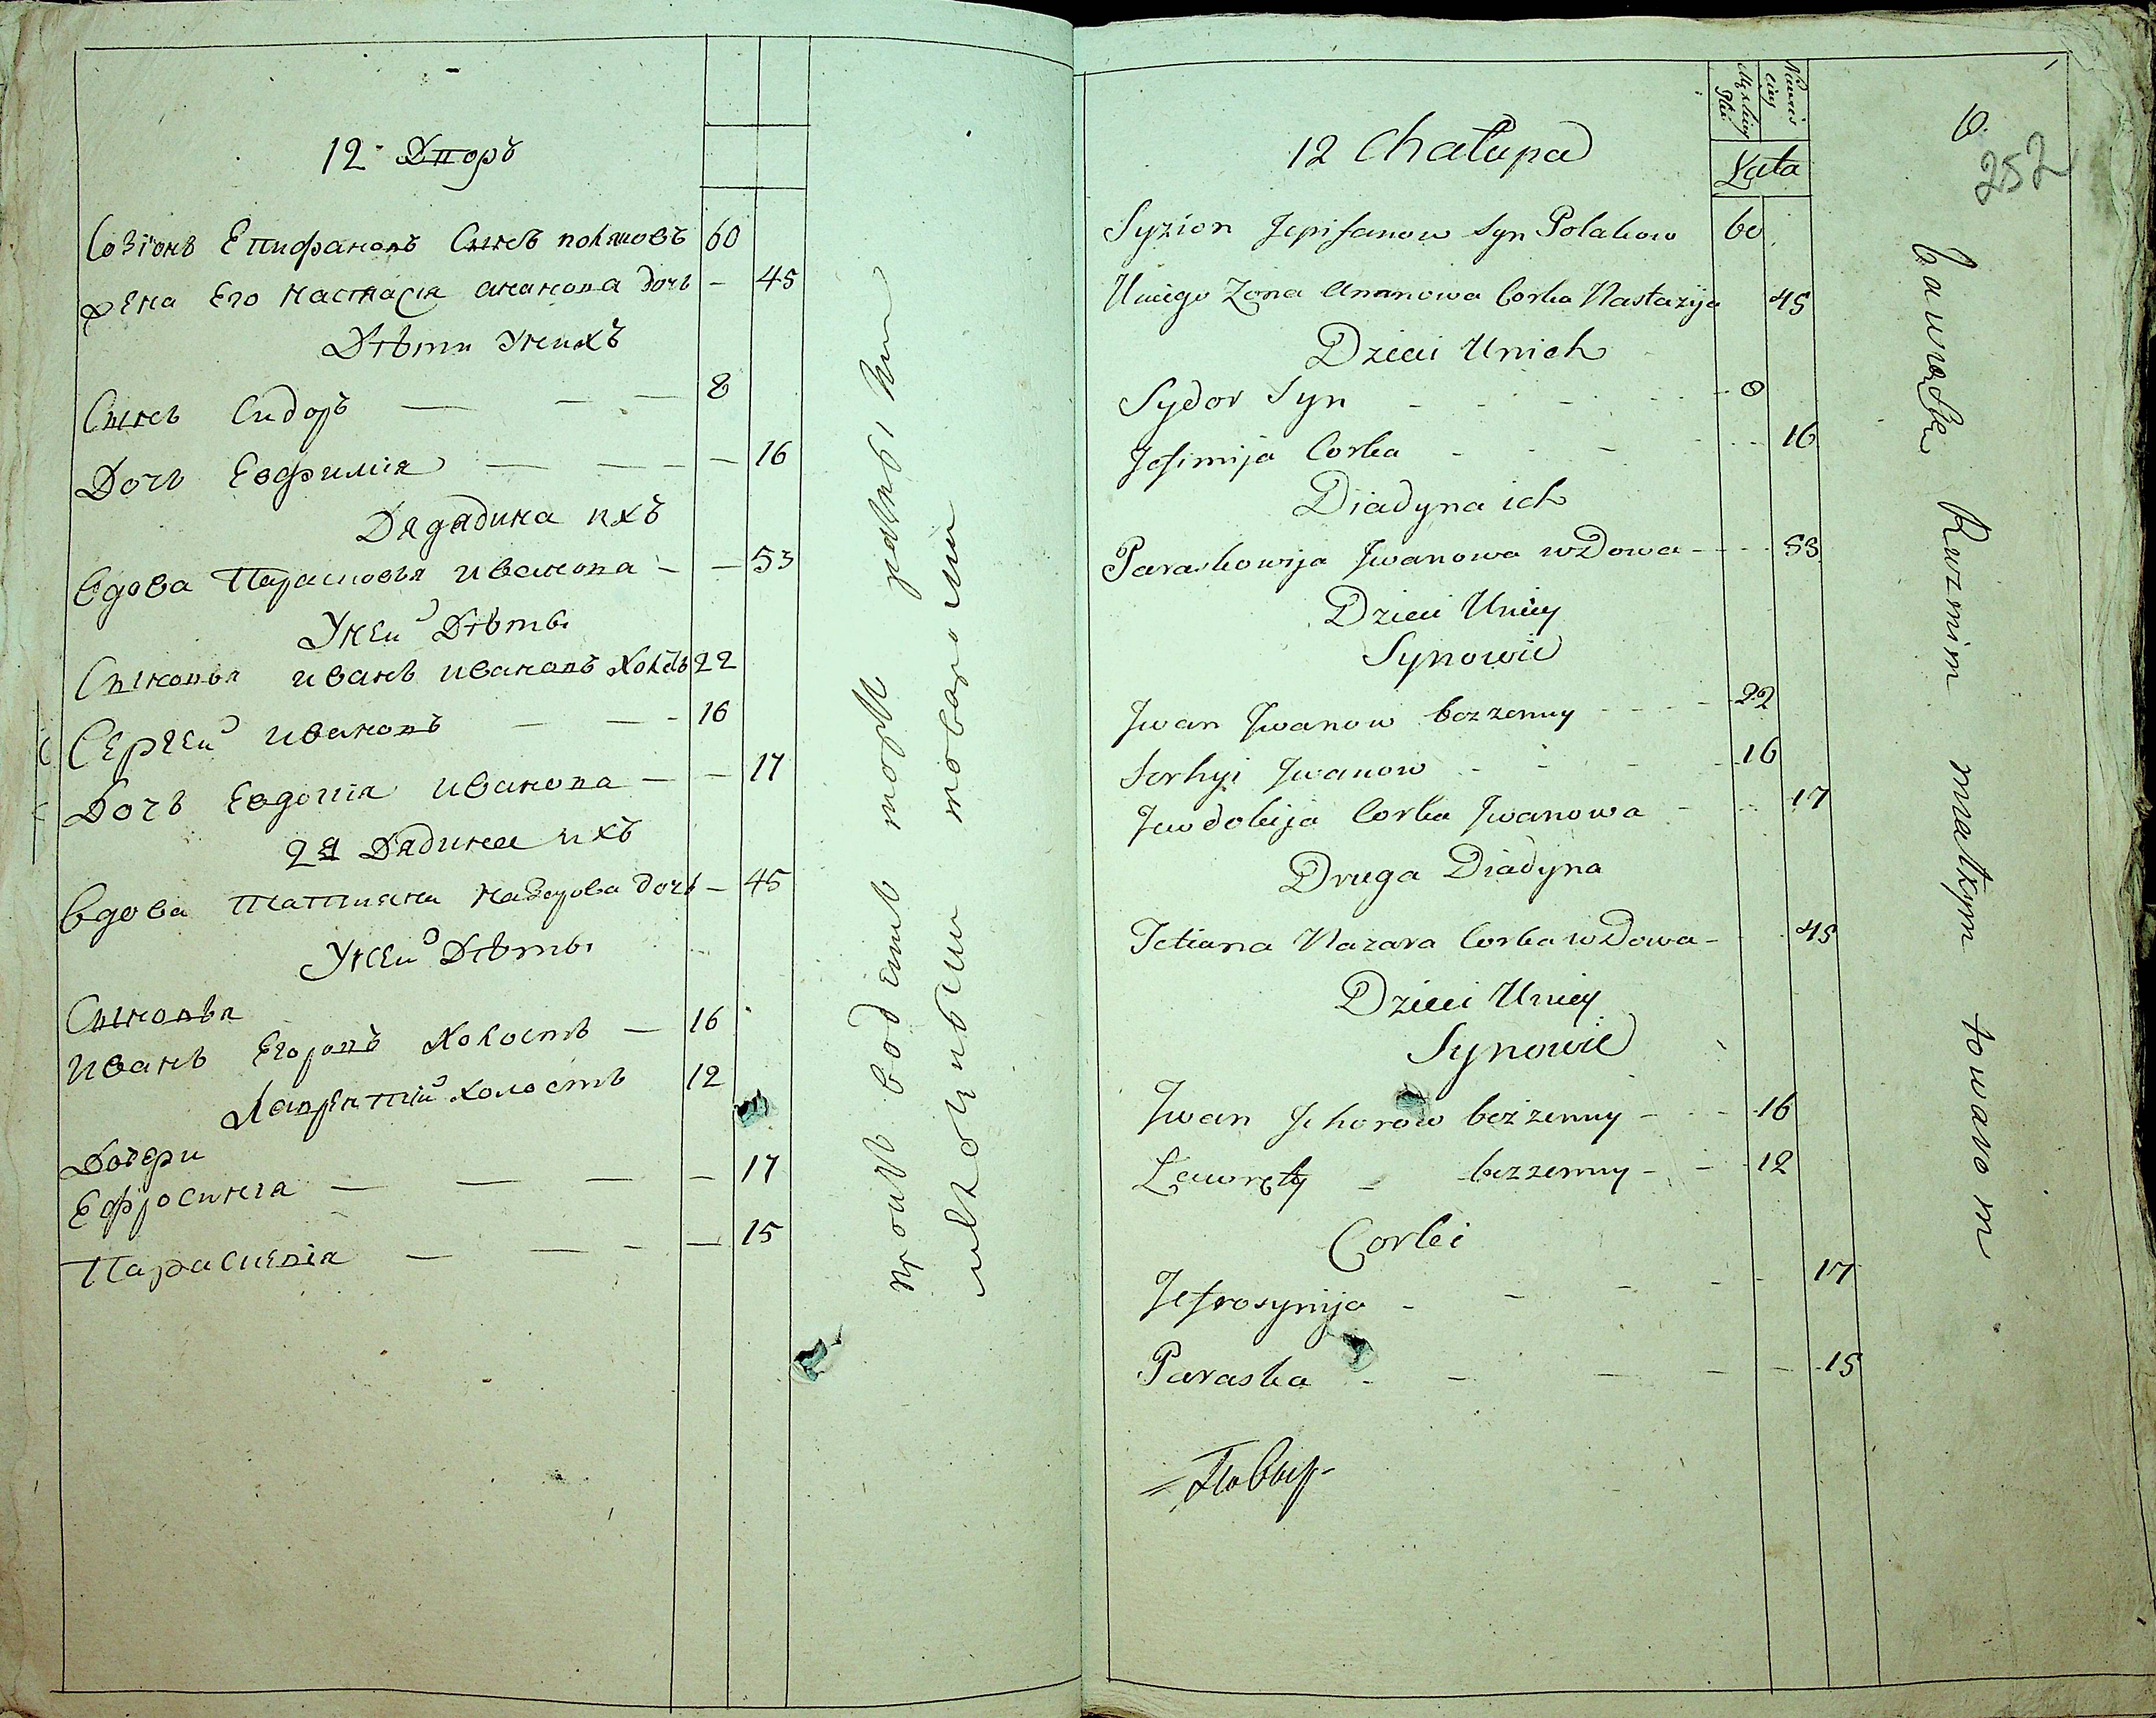 12 Дворъ
Созіонъ Епифановъ Сынъ поляковъ 60
жена Его настасія ананова дочь — 45
Дѣти Унихъ
Сынъ Сидоръ — — — 8
Дочь Евфимія — — — — 16
Дядина ихъ
Вдова Парасковья иванова — — 53
Унеи Дѣты
Сыновья иванъ ивановъ Холостъ 22
Сергеи ивановъ — — — 16
Дочь Евдокія иванова — — 17
2я Дядина ихъ
Вдова татияна назарова дочь — 45
Унеи Дѣты
Сыновья
Иванъ Егоровъ Холостъ — 16
Лаврентіи холостъ 12
Дочери
Ефросинія — — — — 17
Парасковія — — — — 15
Производитъ торгъ
мелочнымъ товаромъ
12 Chałupa
Męzkiey Płci
Lata
Syzion Jepifanow Syn Polakow 60
Uniego Żona Ananowa Corka Nastazyja 45
Dzieci Unich
Sydor Syn 8
Jefimija Corka 16
Diadyna ich
Paraskowija Jwanowa wdowa 53
Dzieci Uniey
Synowie
Jwan Jwanow bezzenny 22
Serhyi Jwanow 16
Jewdokija Corka Jwanowa 17
Druga Diadyna
Tetiana Nazara Corka wdowa 45
Dzieci Uniey
Synowie
Jwan Jehorow bezzenny 16
Ławręty bezzenny 12
Corki
Jefrosynija 17
Paraska 15
252
małym towarom